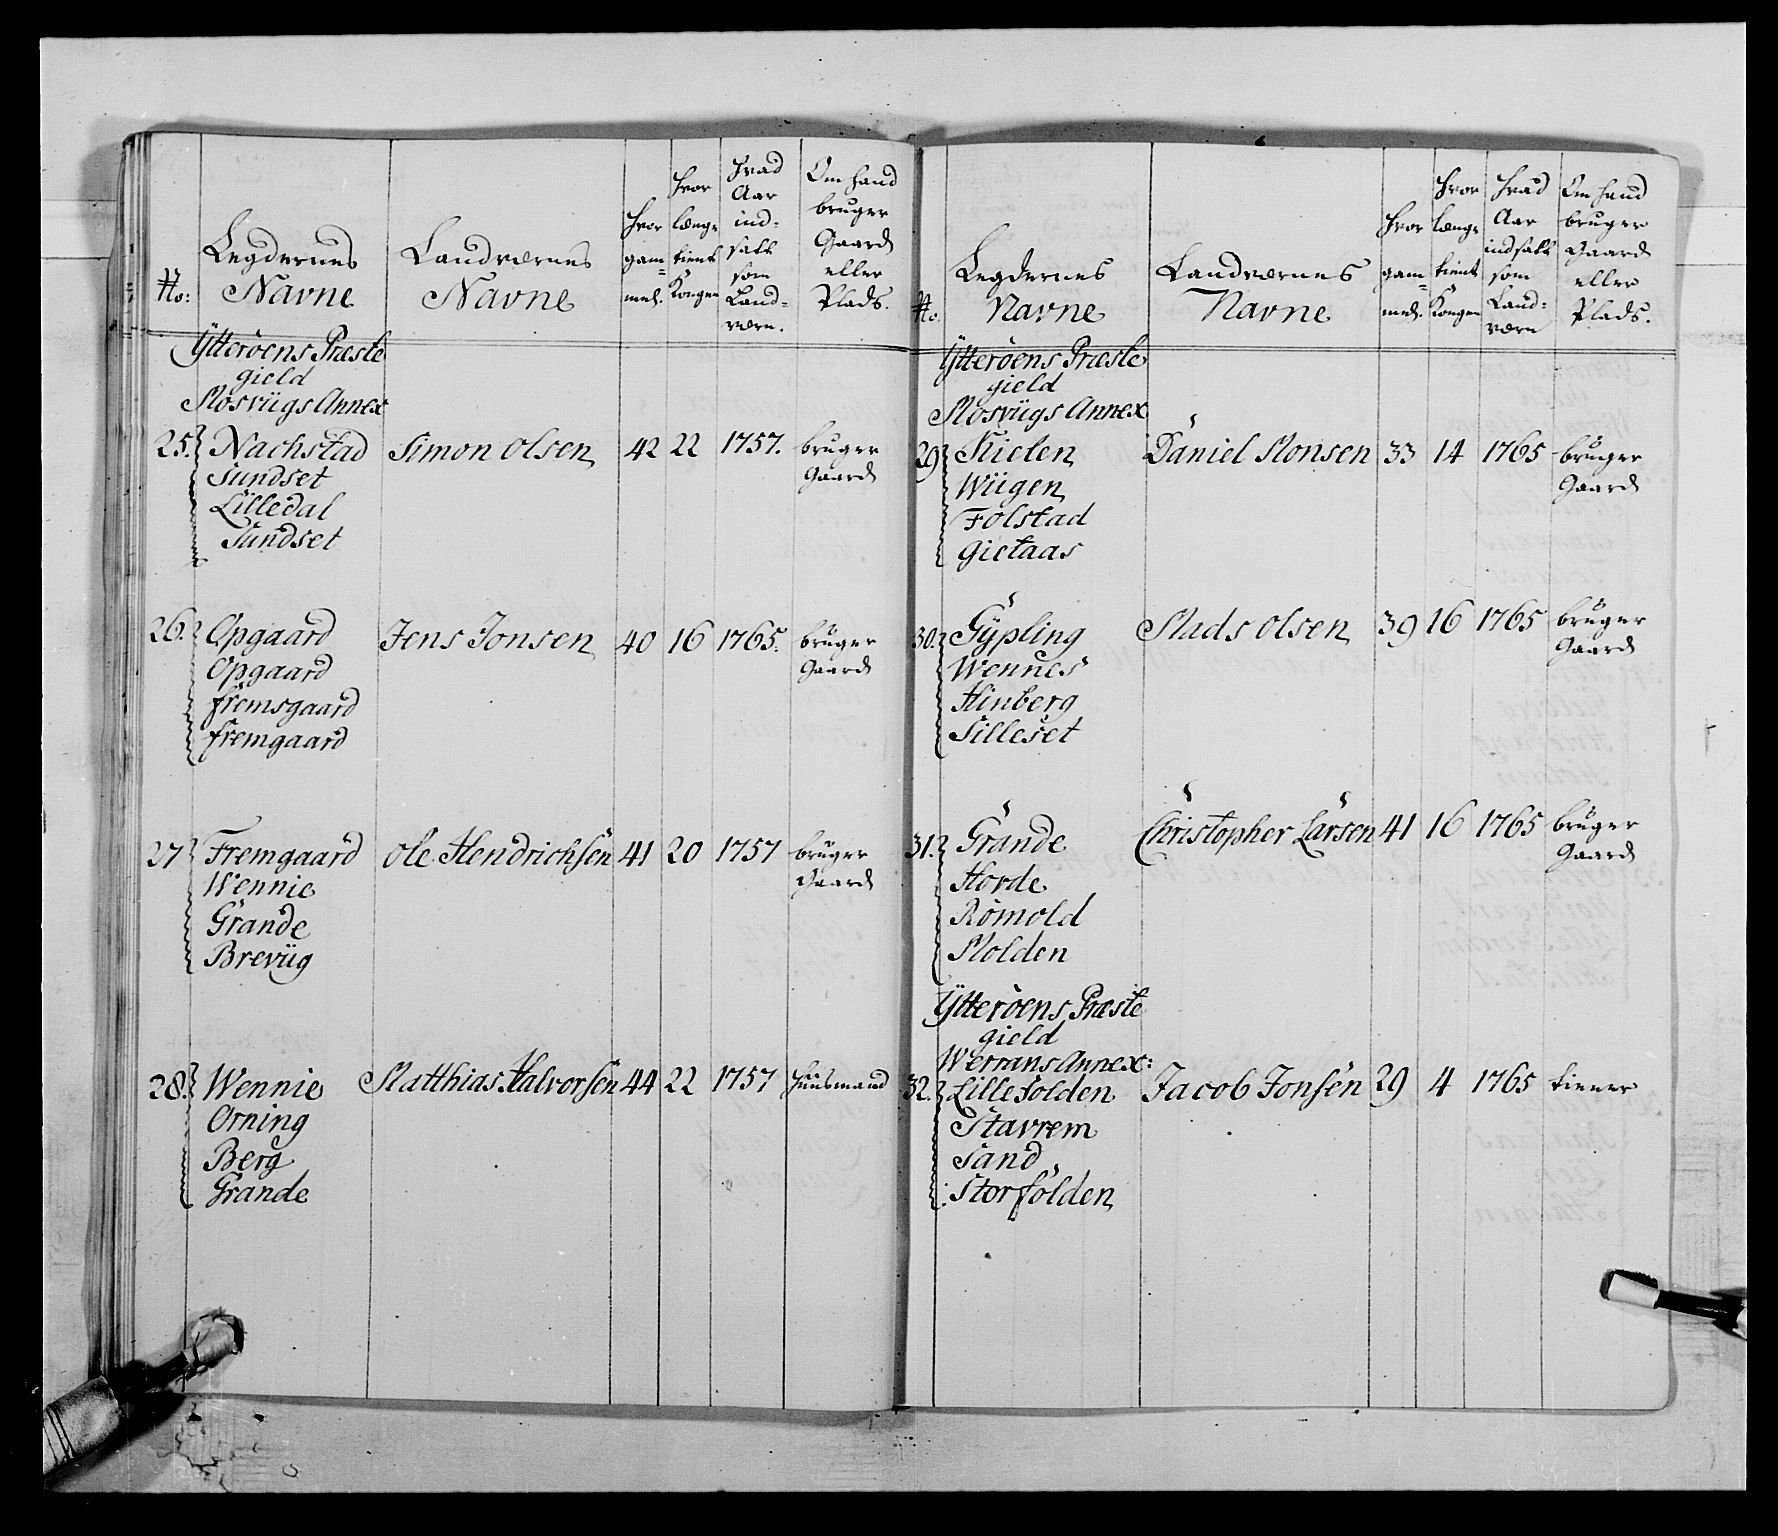 No:
Legdernes
Navne
Landværnes
Navne
Hvor
gam=
mel.
Hvor
længe
tient
Kongen
Hvad
Aar
ind=
satt
som
Land=
værn.
Om hand
bruger
Gaard
eller
Plads.
Ÿtterøens Præste
gield
Mosviigs Annex
25. Nachstad Simon Olsen 42 22 1757. bruger
Gaard
Sundset
Lilledal
Sundset
26. Opgaard Jens Jonsen 40 16 1765. bruger
Gaard
Opgaard
fremsgaard
fremgaard
27 Fremgaard Ole Hendrichsen 41 20 1757 bruger
Gaard
Wennie
Grande
Breviig
28. Wennie Matthias Halvorsen 44 22 1757 Huusmand
Orning
Berg
Grande
No.
Legdernes
Navne
Landværnes
Navne
Hvor
gam=
mel.
Hvor
længe
tient
Kongen
Hvad
Aar
indsatt
som
Land=
værn
Om hand
bruger
Gaard
eller
Plads.
Ÿtterøens Præste
gield
Mosviigs Annex
29 Kielen Daniel Monsen 33 14 1765 bruger
Gaard
Wiigen
Folstad
Gietaas
30. Gÿpling Mads Olsen 39 16 1765 bruger
Gaard
Wennes
Hinberg
Silleset
31. Grande Christopher Larsen 41 16 1765 bruger
Gaard
Horde
Rømold
Molden
Ÿtterøens Præste
gield
Werrans Annex:
32. Lille Folden Jacob Jonsen 29 4 1765 tiener
Stavrem
Sand
Storfolden